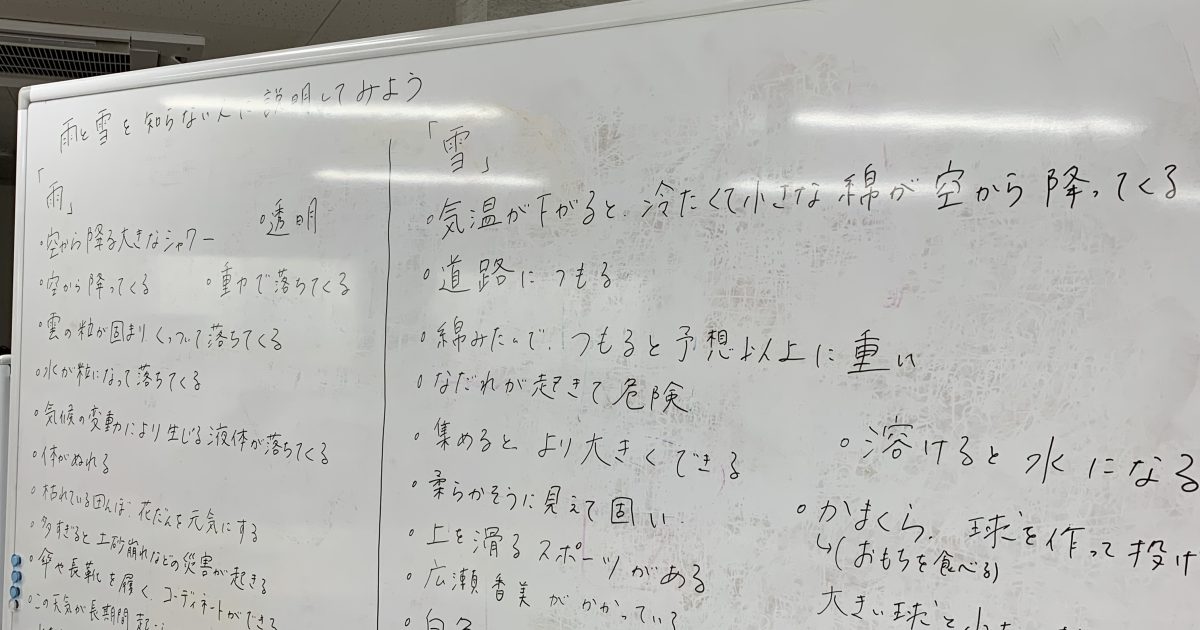 雨と雪を知らない人に説明してみよう
「雨」
○透明
○空から降る大きなシャワー
○空から降ってくる
○重力で落ちてくる
○雲の粒が固まりくっついて落ちてくる
○水が粒になって落ちてくる
○気候の変動により生じる液体が落ちてくる
○体がぬれる
○枯れている田んぼ、花だんを元気にする
○多すぎると土砂崩れなどの災害が起きる
○傘や長靴を履く、コーディネートができる
○この天気が長期間
「雪」
○気温が下がると、冷たくて小さな綿が空から降ってくる
○道路につもる
○綿みたいで、つもると予想以上に重い
○なだれが起きて危険
○集めるとより大きくできる
○柔らかそうに見えて固い
○上を滑るスポーツがある
○広瀬香美がかかっている
○白
○溶けると水になる
○かまくら、球を作って投げ
↳(おもちを食べる)
大きい球と